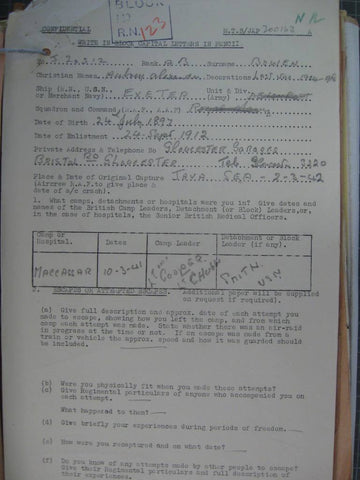 BLOCK
R.N.
123
NR
CONFIDENTIAL M.I.9/JAP/300163 A
WRITE IN BLOCK CAPITAL LETTERS IN PENCIL
No. Rank A.B Surname BOWEN
Christian Names Decorations
Ship (R.N., U.S.N. or Merchant Navy). EXETER Unit & Div. (Army)
Squadron and Command
Date of Birth 24 July 1897
Date of Enlistment 24 Sept 1912
Private Address & Telephone No GLOUCESTER GARAGE
BRISTOL RD GLOUCESTER Tel. 3220
Place & Date of Original Capture JAVA SEA - 2-3-42
(Aircrew R.A.F. to give place &
date of a/c crash).
1. What camps, detachments or hospitals were you in? Give dates and
names of the British Camp Leaders, Detachment (or Block) Leaders, or,
in the case of hospitals, the Senior British Medical Officers.
Camp or Hospital. Dates Camp Leader Detachment or Block Leader (if any).
MACCASAR 10-3-42 COOPER SMITH USN
2. ESCAPES OR ATTEMPTED ESCAPES. (Additional paper will be supplied
on request if required).
(a) Give full description and approx. date of each attempt you
made to escape, showing how you left the camp, and from which
camp each attempt was made. State whether there was an air-raid
in progress at the time or not. If an escape was made from a
train or vehicle the approx. speed and how it was guarded should
be included.
(b) Were you physically fit when you made these attempts?
(c) Give Regimental particulars of anyone who accompanied you on
each attempt.
What happened to them?
(d) Give briefly your experiences during periods of freedom.
(e) How were you recaptured and on what date?
(f) Do you know of any attempts made by other people to escape?
Give their Regimental particulars and full description of
their experiences.